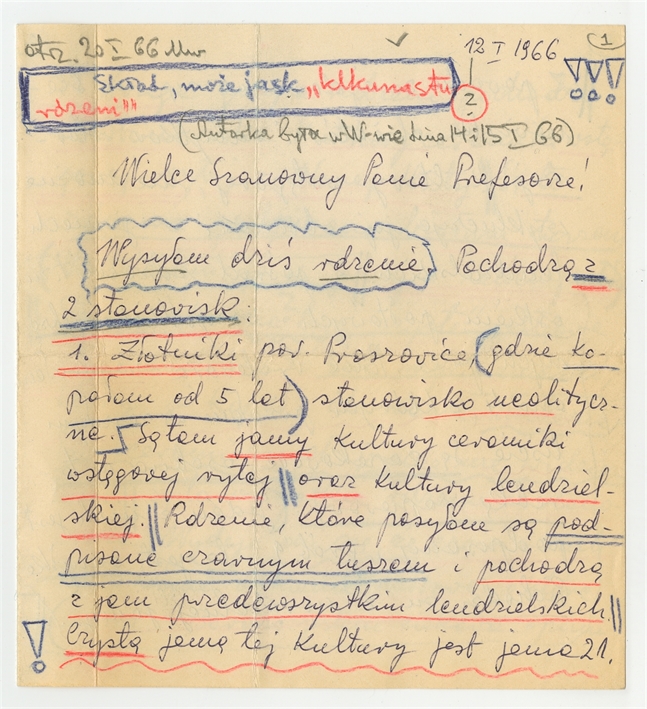 otrz. 20 I 66 Mw
12 I 1966
1
!!!
Skrót, może jask „kilkunastu
rdzeni""
?
(Autorka była w W-wie dnia 14 i 15 I 66)
Wielce Szanowny Panie Profesorze!
Wysyłam dziś rdzenie. Pochodzą z
2 stanowisk:
1. Złotniki pow. Proszowice, (gdzie ko-
pałam od 5 lat) stanowisko neolitycz-
ne. Są tam jamy kultury ceramiki
wstęgowej rytej || oraz kultury lendziel-
skiej. || Rdzenie, które posyłam są pod-
pisane czarnym tuszem i pochodzą
z jam przedewszystkim lendzielskich. ||
! Czystą jamą tej kultury jest jama 21.